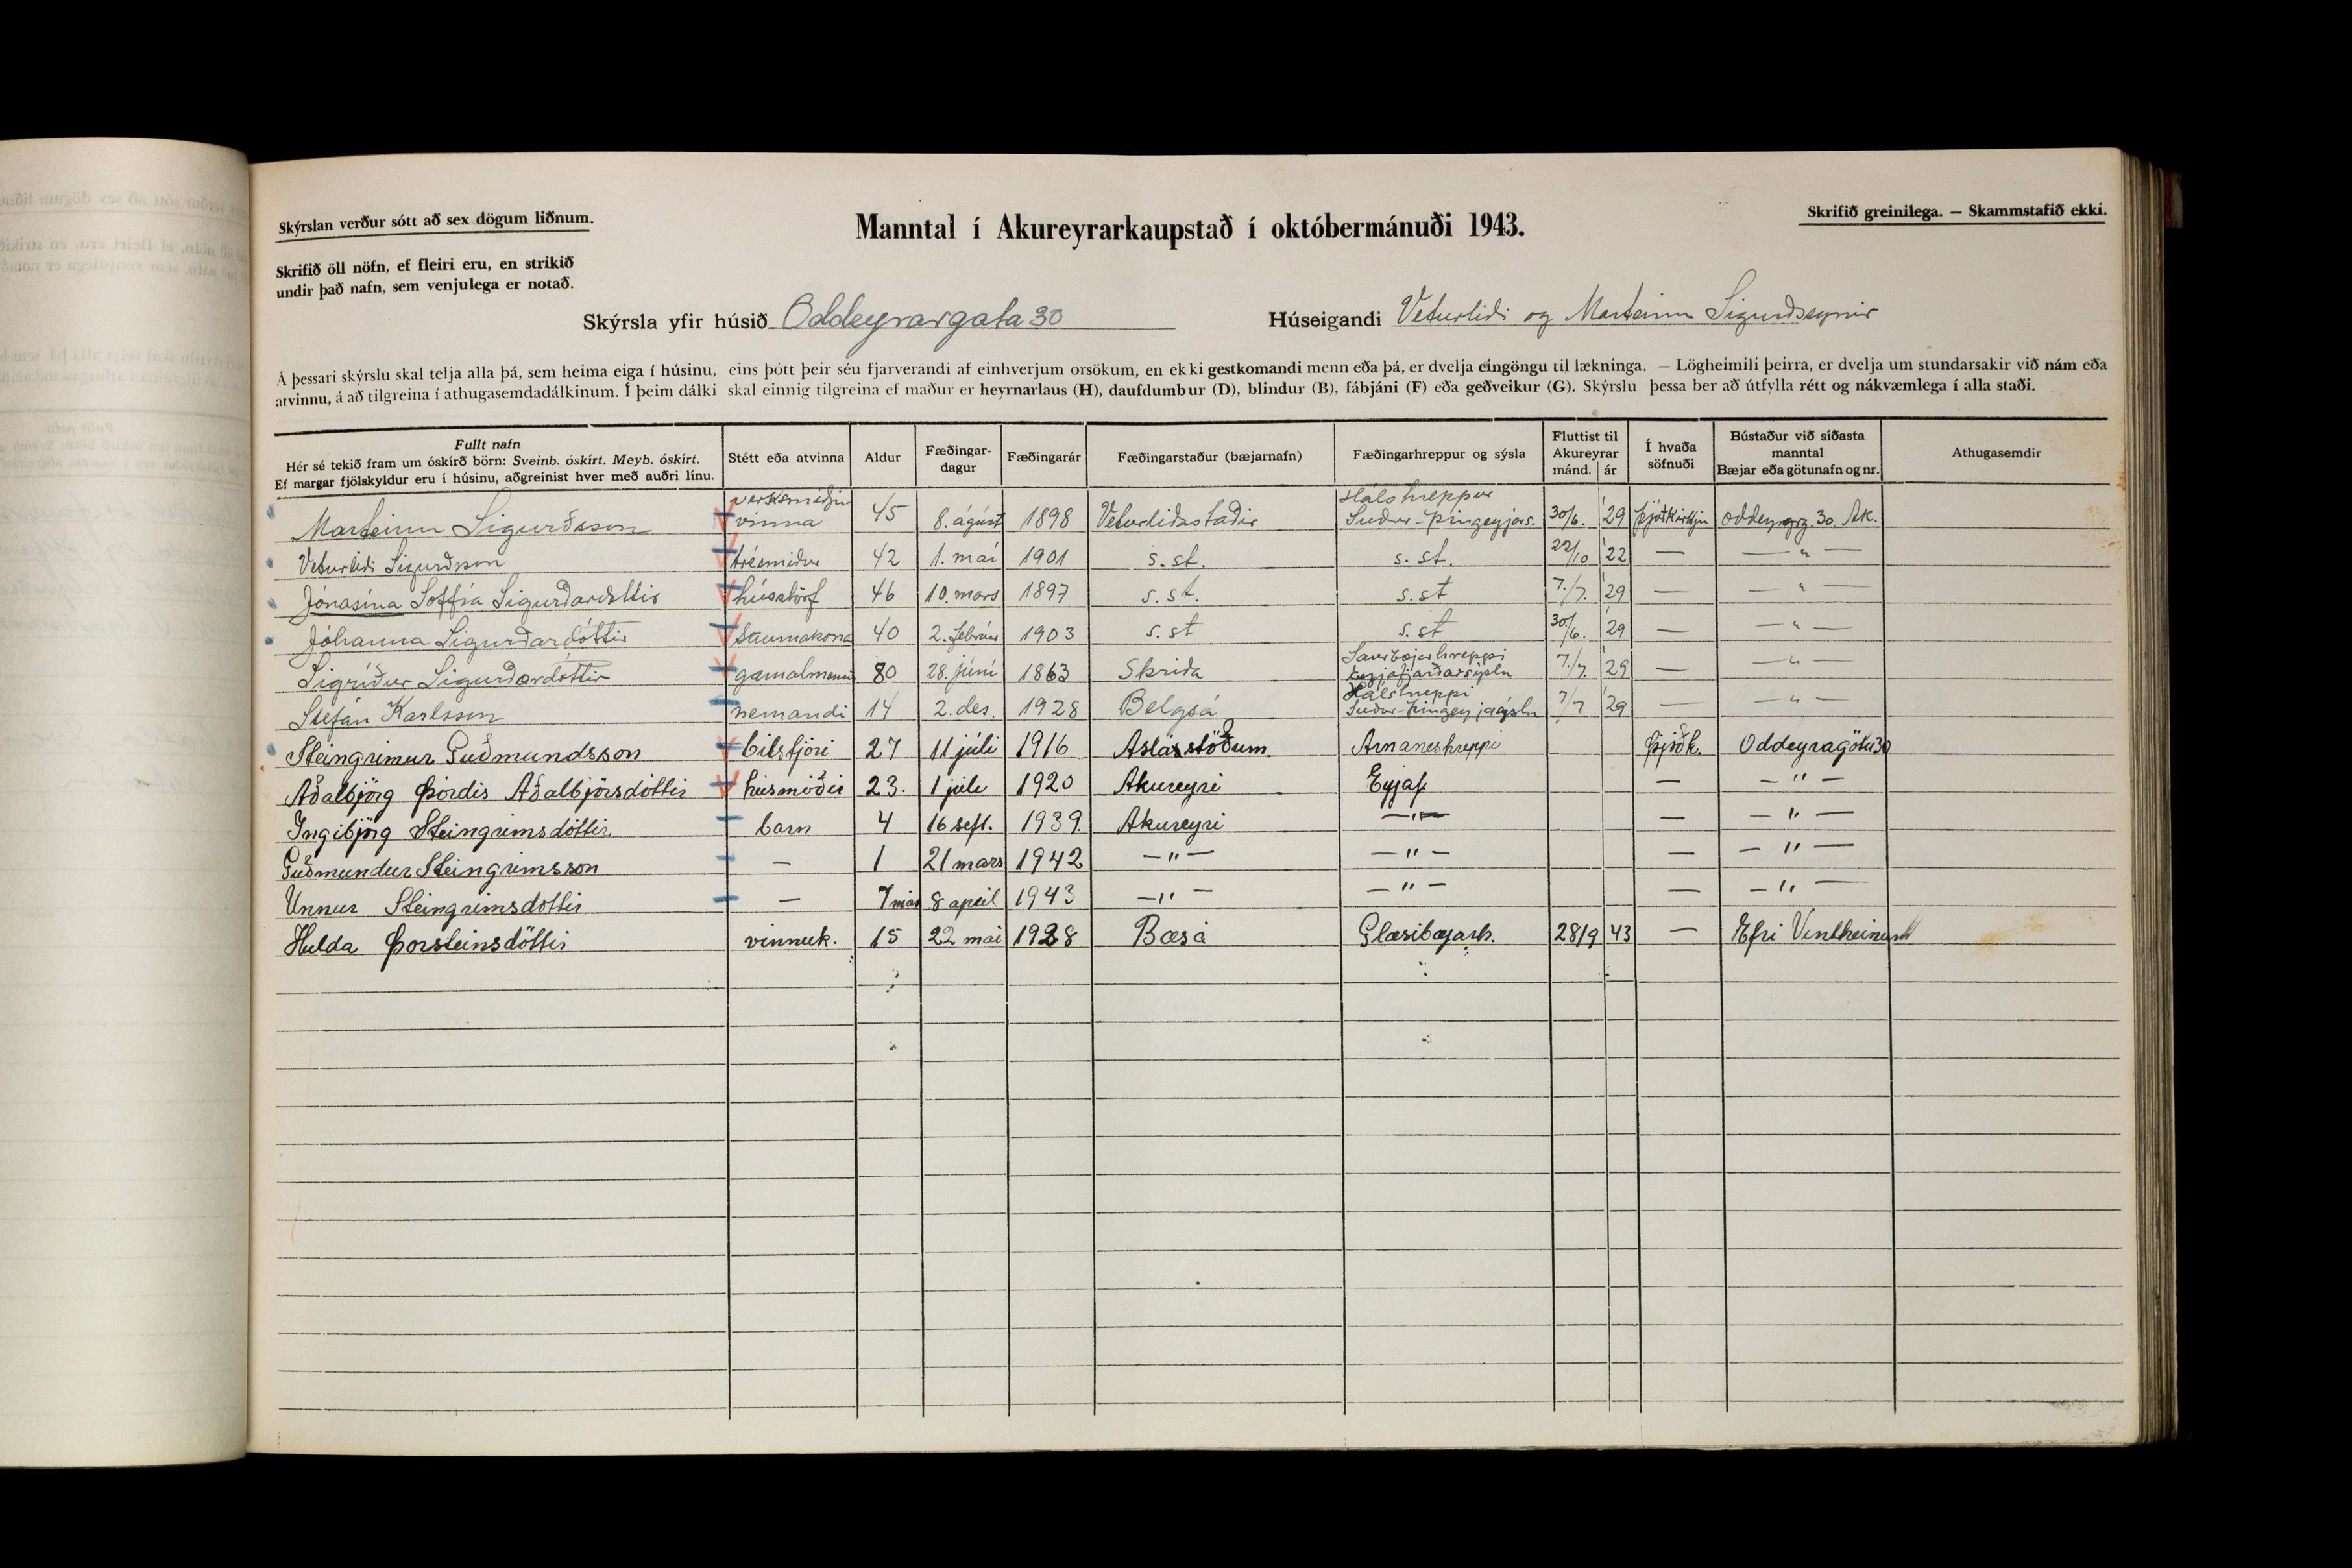 Skýrslan verður sótt að sex dögum liðnum.
Manntal í Akureyrarkaupstað í októbermánuði 1943.
Skrifið greinilega. — Skammstafið ekki.
Skrifið öll nöfn, ef fleiri eru, en strikið
undir það nafn, sem venjulega er notað.
Skýrsla yfir húsið Oddeyrargata 30
Húseigandi Veturliði og Marteinn Sigurðssynir
Á þessari skýrslu skal telja alla þá, sem heima eiga í húsinu, eins þótt þeir séu fjarverandi af einhverjum orsökum, en ekki gestkomandi menn eða þá, er dvelja eingöngu til lækninga. — Lögheimili þeirra, er dvelja um stundarsakir við nám eða
atvinnu, á að tilgreina í athugasemdadálkinum. Í þeim dálki skal einnig tilgreina ef maður er heyrnarlaus (H), daufdumbur (D), blindur (B), fábjáni (F) eða geðveikur (G). Skýrslu þessa ber að útfylla rétt og nákvæmlega í alla staði.
Fullt nafn
Hér sé tekið fram um óskírð börn: Sveinb. óskírt. Meyb. óskírt.
Ef margar fjölskyldur eru í húsinu, aðgreinist hver með auðri línu.
Stétt eða atvinna
Aldur
Fæðingar-
dagur
Fæðingarár
Fæðingarstaður (bæjarnafn)
Fæðingarhreppur og sýsla
Fluttist til
Akureyrar
mánd. ár
Í hvaða
söfnuði
Bústaður við síðasta
manntal
Bæjar eða götunafn og nr.
Athugasemdir
Marteinn Sigurðsson verksmiðju- vinna 45 8. ágúst 1898 Veturliðastaðir Hálshreppur Suður-Þingeyjars. 30/6. '29 Þjóðkirkju Oddeyrarg. 30, Ak.
Veturliði Sigurðsson trésmiður 42 1. maí 1901 s. st. s. st. 22/10 '22 — — " —
Jónasína Soffía Sigurðardóttir hússtörf 46 10. mars 1897 s. st. s. st 7./7. '29 — — " —
Jóhanna Sigurðardóttir saumakona 40 2. febrúar 1903 s. st s. st 30/6. '29 — — " —
Sigríður Sigurðardóttir gamalmenni 80 28. júní 1863 Skriða Saurbæjarhreppi Eyjafjarðarsýslu 7./7. '29 — — " —
Stefán Karlsson nemandi 14 2. des. 1928 Belgsá Hálshreppi Suður-Þingeyjarsýslu 7/7 '29 — — " —
Steingrimur Guðmundsson bilstjóri 27 11 júli 1916 Arnaneshreppi Þjóðk. Oddeyragötu 30
Aðalbjörg Þórdis Aðalbjörsdóttir húsmóðir 23. 1 júli 1920 Akureyri Eyjaf — — " —
Ingibjörg Steingrimsdóttir barn 4 16 sept. 1939. Akureyri — " — — — " —
Guðmundur Steingrimsson — 1 21 mars 1942 — " — — " — — — " —
Unnur Steingrimsdóttir — 7 mán 8 april 1943 — " — — " — — — " —
Hulda Þorsteinsdóttir vinnuk. 15 22 mai 1928 Bæsá Glæsibæjarh. 28/9 43 — Efri